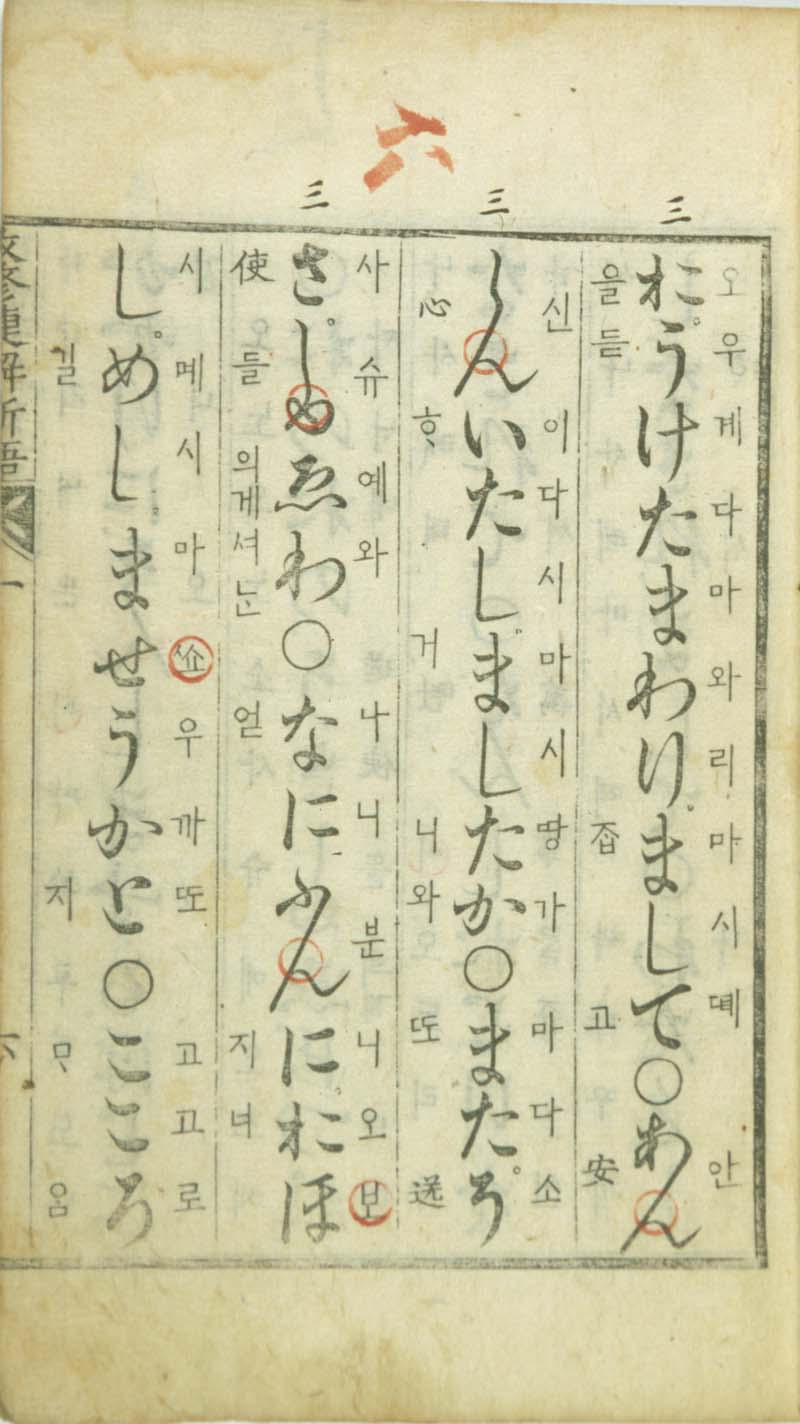 六
三 三 三
오우계다마와리마시뎨 안
おうけたまわりまして○あん
을듣ᄌᆞᆸ고 安
신이다시마시땅가 마다소
しんいたしましたか○またそ
心ᄒᆞ거니와 또送
사슈예와 나니분니오보
さしゆゑわ○なにふんにおほ
使들의게셔ᄂᆞᆫ 얻지너
시메시마쇼우까또 고고로
しめしませうかと○こころ
길지 ᄆᆞ음
改修捷解新語 一 六